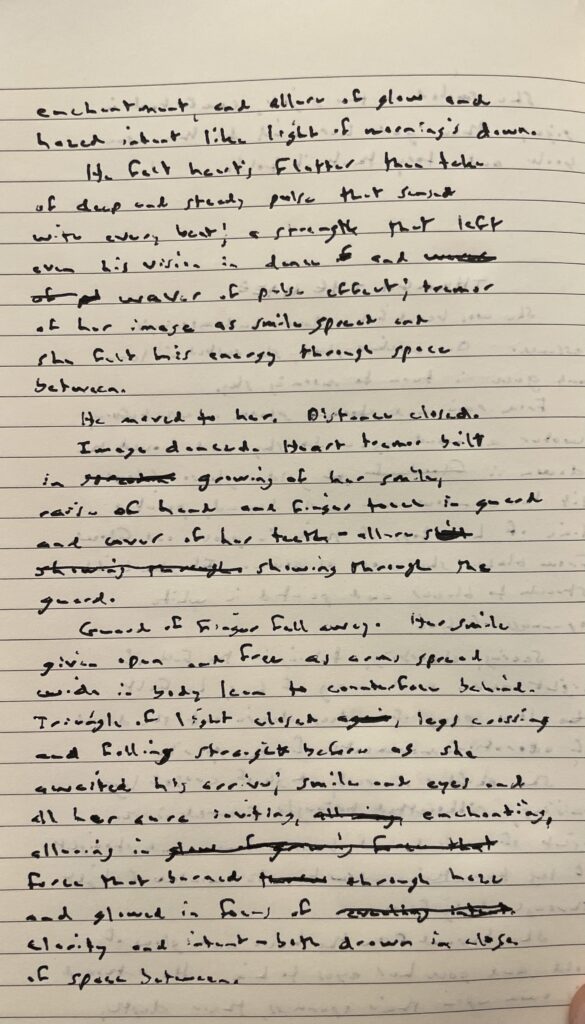 enchantment, and allure of glow and
hazed intent like light of morning's dawn.
He felt heart's flutter then take
of deep and steady pulse that sensed
with every beat; a strength that left
even his vision in dance and
waver of pulse effect; tremor
of her image as smile spread and
she felt his energy through space
between.
He moved to her. Distance closed.
Image danced. Heart tremor built
in growing of her smile,
raise of hand and finger touch in guard
and cover of her teeth - allure still
showing through showing through the
guard.
Guard of finger fell away. Her smile
given open and free as arms spread
wide in body lean to counterforce behind.
Triangle of light closed again, legs crossing
and falling straight before as she
awaited his arrival; smile and eyes and
all her aura inviting, alluring, enchanting,
alluring in glow of growing force that
force that burned through haze
and glowed in focus of intent.
clarity and intent - both drawn in close
of space between.